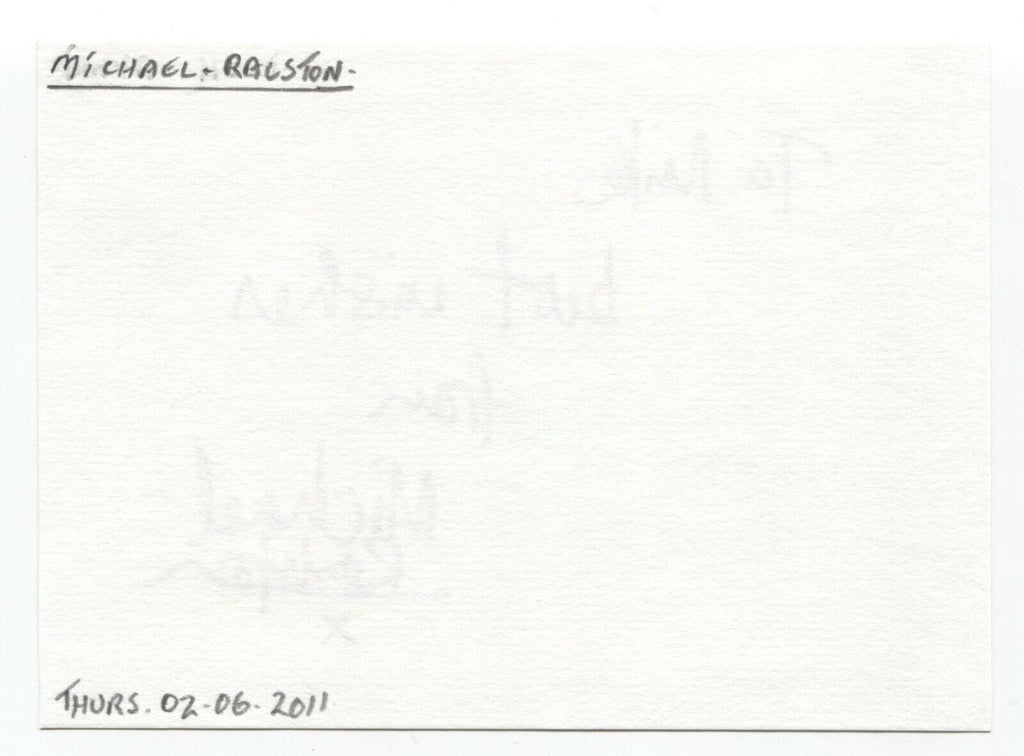 MICHAEL - RALSTON -
To Mike
best wishes
from
Michael
Ralston
x
THURS. 02-06-2011